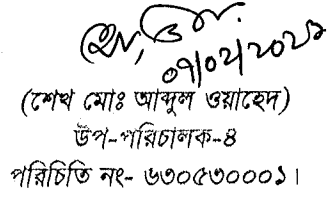 ০৭/০২/২০২১
(শেখ মোঃ আব্দুল ওয়াহেদ)
উপ-পরিচালক-৪
পরিচিতি নং- ৬৩০৫৩০০০১।